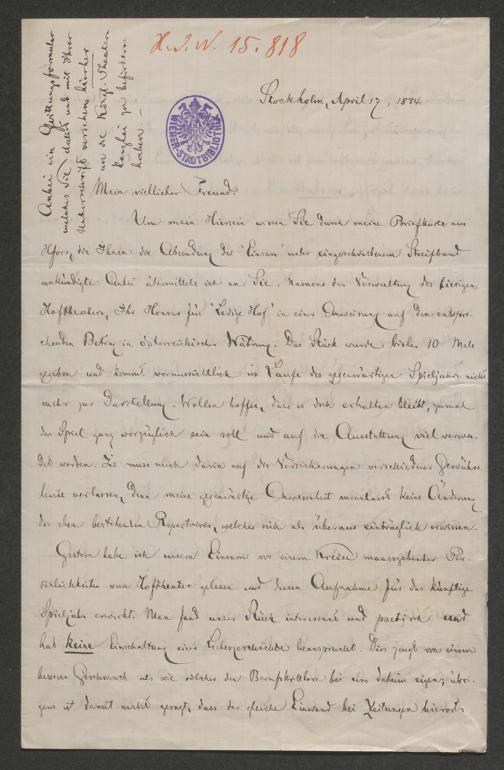 H. I. N. 15.818
Anbei ein Quittungsformular
welches Sie datirt und mit Ihrer
Unterschrift versehen hierher
an die Königl. Theater
Kanzlei zu befördern
haben –
WIENER-STADTBIBLIOTHEK
Stockholm, April 17, 1884.
Mein vielliebster Freund.
Um mein Hiersein wissen Sie durch meine Briefkarte aus
die Ihnen die Absendung des "Einsam" unter eingeschriebenem Streifband
ankündigte. Anbei übermittele ich an Sie, Namens der Verwaltung des hiesigen
Hoftheaters, Ihr Honorar für "Ledige Hof" in einer Anweisung auf den entspre-
chenden Betrag in österreichischer Währung. Das Stück wurde bisher 10 Male
gegeben und kommt voraussichtlich im Laufe des gegenwärtigen Spieljahrs nicht
mehr zur Darstellung. Wollen hoffen, dass es doch erhalten bleibt, zumal
das Spiel ganz vorzüglich sein soll und auf die Ausstattung viel verwen-
det worden. Ich muss mich darin auf die Versicherungen verschiedener Gewährs-
leute verlassen, denn meine gegenwärtige Anwesenheit veranlasst keine Änderung
des eben bestehenden Repertoires, welches sich als überaus einträglich erwiesen.
Gestern habe ich unsern Einsam vor einem Kreise maassgebender Per-
sönlichkeiten vom Hoftheater gelesen und dessen Aufnahme für das künftige
Spieljahr erwirkt. Man fand unser Stück interessant und poetisch und
hat keine Einschaltung einer beansprucht. Dies zeugt von einem
besseren Geschmack als wie solcher den bei uns daheim eigen; übri-
gens ist damit nicht gesagt, dass der gleiche Einwand bei Zeitungen hierorts